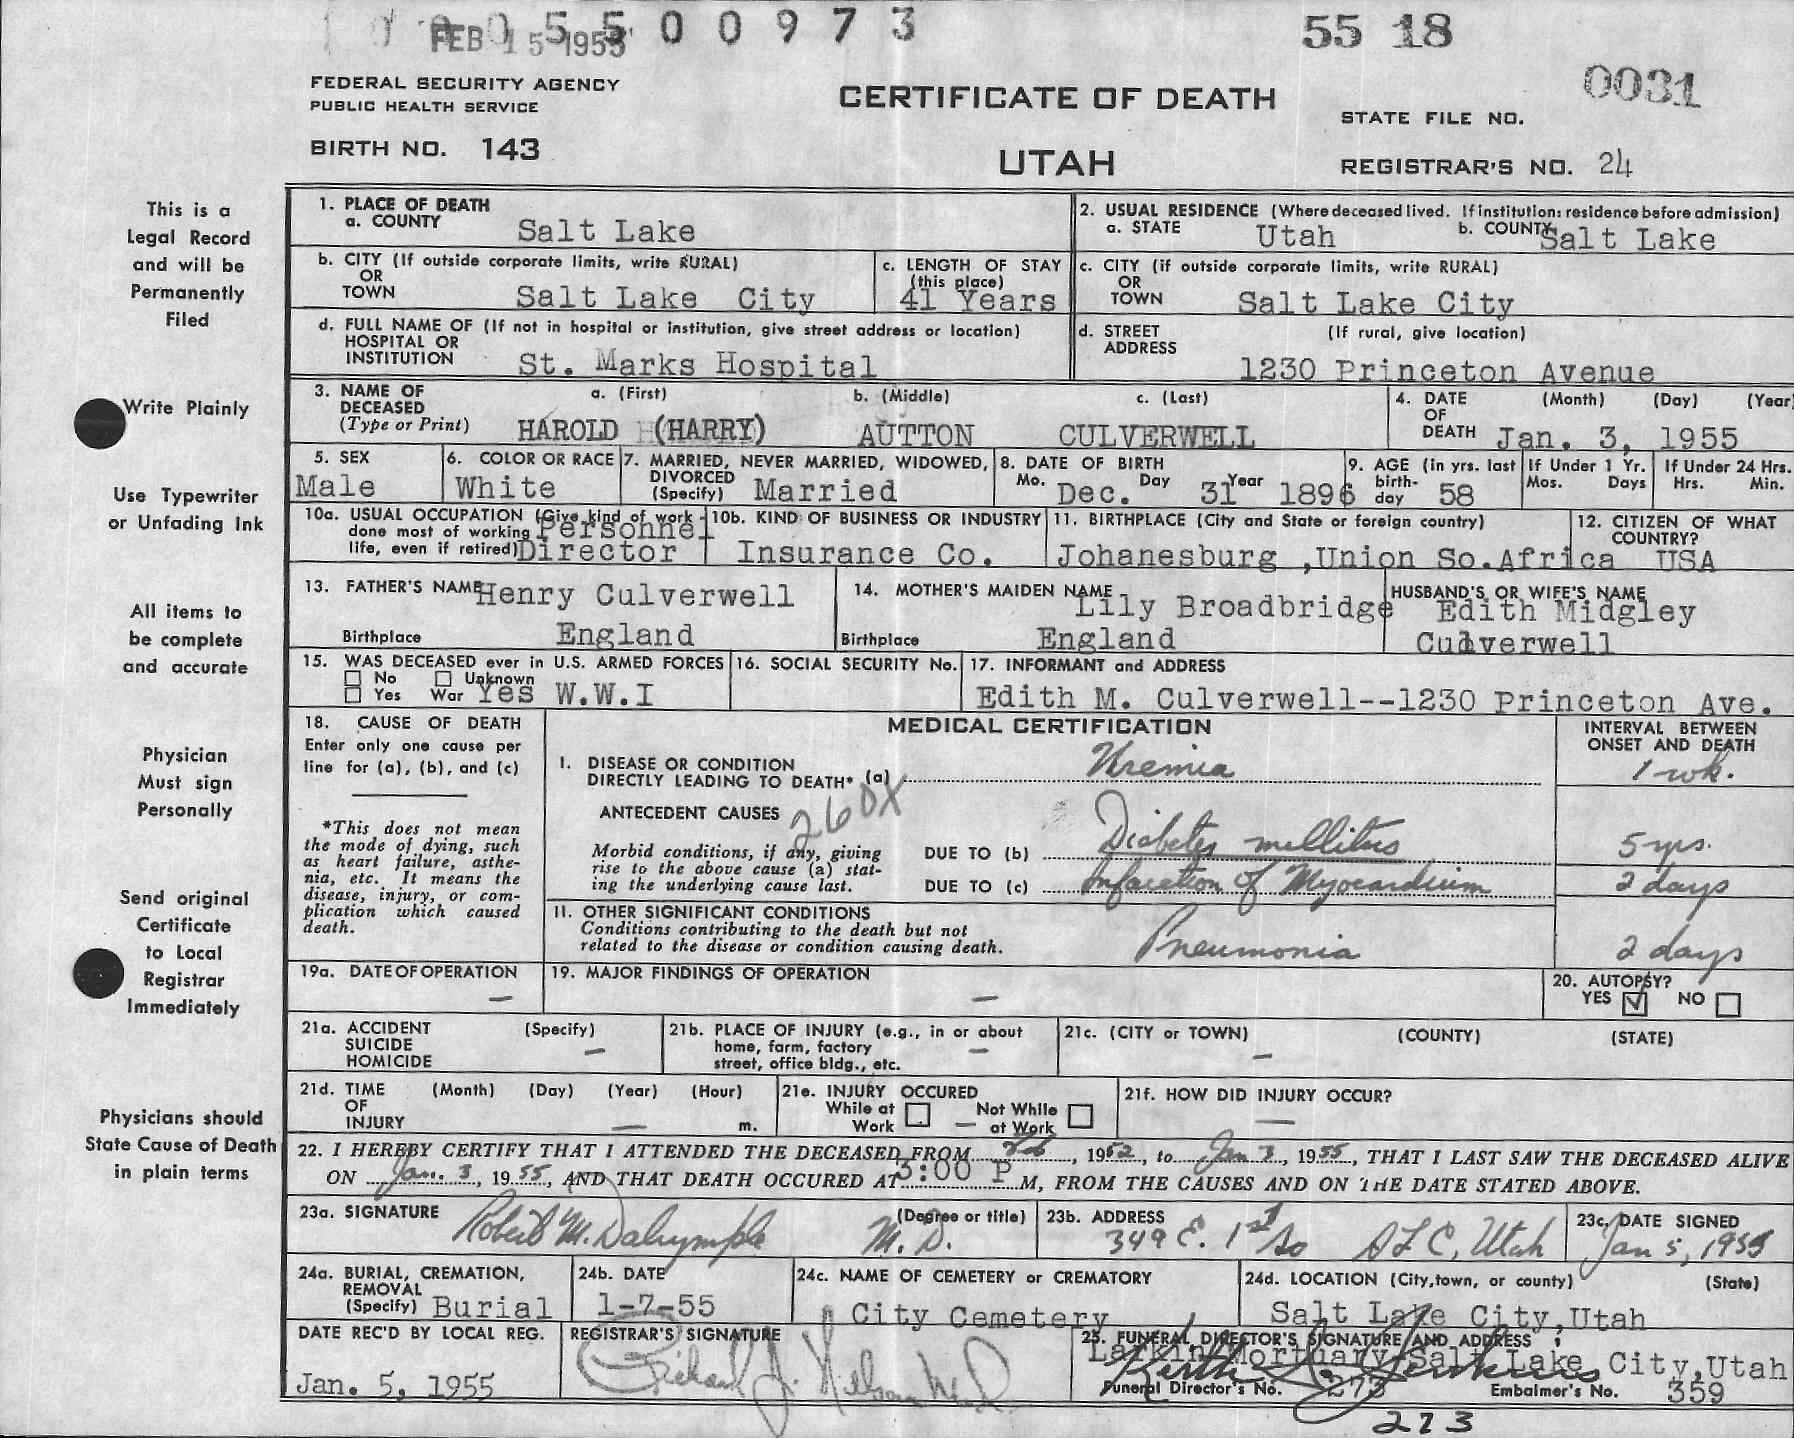 FEB 15 1955 5 5 0 0 9 7 3
55 18
0031
FEDERAL SECURITY AGENCY
PUBLIC HEALTH SERVICE
BIRTH NO. 143
CERTIFICATE OF DEATH
UTAH
STATE FILE NO.
REGISTRAR'S NO. 24
This is a
Legal Record
and will be
Permanently
Filed
Write Plainly
Use Typewriter
or Unfading Ink
All items to
be complete
and accurate
Physician
Must sign
Personally
Send original
Certificate
to Local
Registrar
Immediately
Physicians should
State Cause of Death
in plain terms
1. PLACE OF DEATH
a. COUNTY Salt Lake
2. USUAL RESIDENCE (Where deceased lived. If institution: residence before admission)
a. STATE Utah b. COUNTY Salt Lake
b. CITY (If outside corporate limits, write RURAL)
OR
TOWN Salt Lake City
c. LENGTH OF STAY
(this place)
41 Years
c. CITY (if outside corporate limits, write RURAL)
OR
TOWN Salt Lake City
d. FULL NAME OF (If not in hospital or institution, give street address or location)
HOSPITAL OR
INSTITUTION St. Marks Hospital
d. STREET (If rural, give location)
ADDRESS
1230 Princeton Avenue
3. NAME OF a. (First) b. (Middle) c. (Last)
DECEASED
(Type or Print) HAROLD (HARRY) AUTTON CULVERWELL
4. DATE (Month) (Day) (Year
OF
DEATH Jan. 3, 1955
5. SEX
Male
6. COLOR OR RACE
White
7. MARRIED, NEVER MARRIED, WIDOWED,
DIVORCED
(Specify) Married
8. DATE OF BIRTH
Mo. Dec. Day 31 Year 1896
9. AGE (in yrs. last
birth-
day 58
If Under 1 Yr.
Mos. Days
If Under 24 Hrs.
Hrs. Min.
10a. USUAL OCCUPATION (Give kind of work
done most of working Personnel
life, even if retired) Director
10b. KIND OF BUSINESS OR INDUSTRY
Insurance Co.
11. BIRTHPLACE (City and State or foreign country)
Johanesburg ,Union So.Africa
12. CITIZEN OF WHAT
COUNTRY?
USA
13. FATHER'S NAME Henry Culverwell
Birthplace England
14. MOTHER'S MAIDEN NAME
Lily Broadbridge
Birthplace England
HUSBAND'S OR WIFE'S NAME
Edith Midgley
Culverwell
15. WAS DECEASED ever in U.S. ARMED FORCES
No Unknown
Yes War Yes W.W.I
16. SOCIAL SECURITY No.
17. INFORMANT and ADDRESS
Edith M. Culverwell--1230 Princeton Ave.
18. CAUSE OF DEATH
Enter only one cause per
line for (a), (b), and (c)
*This does not mean
the mode of dying, such
as heart failure, asthe-
nia, etc. It means the
disease, injury, or com-
plication which caused
death.
MEDICAL CERTIFICATION
INTERVAL BETWEEN
ONSET AND DEATH
I. DISEASE OR CONDITION
DIRECTLY LEADING TO DEATH* (a) Uremia 1 wk.
ANTECEDENT CAUSES 260X
Morbid conditions, if any, giving
rise to the above cause (a) stat-
ing the underlying cause last.
DUE TO (b) Diabetes mellitus 5 yrs.
DUE TO (c) Infarction of Myocardium 2 days
II. OTHER SIGNIFICANT CONDITIONS
Conditions contributing to the death but not
related to the disease or condition causing death.
Pneumonia 2 days
19a. DATE OF OPERATION
—
19. MAJOR FINDINGS OF OPERATION
—
20. AUTOPSY?
YES ✓ NO
21a. ACCIDENT (Specify)
SUICIDE —
HOMICIDE
21b. PLACE OF INJURY (e.g., in or about
home, farm, factory —
street, office bldg., etc.
21c. (CITY or TOWN) (COUNTY) (STATE)
—
21d. TIME (Month) (Day) (Year) (Hour)
OF
INJURY — m.
21e. INJURY OCCURED
While at Not While
Work — at Work
21f. HOW DID INJURY OCCUR?
—
22. I HEREBY CERTIFY THAT I ATTENDED THE DECEASED FROM Feb, 1952, to Jan 3, 1955, THAT I LAST SAW THE DECEASED ALIVE
ON Jan. 3, 1955, AND THAT DEATH OCCURED AT 3:00 P M, FROM THE CAUSES AND ON THE DATE STATED ABOVE.
23a. SIGNATURE (Degree or title)
Robert M. Dalrymple M.D.
23b. ADDRESS
349 E. 1st So SLC, Utah
23c. DATE SIGNED
Jan 5, 1955
24a. BURIAL, CREMATION,
REMOVAL
(Specify) Burial
24b. DATE
1-7-55
24c. NAME OF CEMETERY or CREMATORY
City Cemetery
24d. LOCATION (City, town, or county) (State)
Salt Lake City,Utah
DATE REC'D BY LOCAL REG.
Jan. 5, 1955
REGISTRAR'S SIGNATURE
Richard J. Nelson M.D.
25. FUNERAL DIRECTOR'S SIGNATURE AND ADDRESS
Larkin Mortuary,Salt Lake City,Utah
Funeral Director's No. 273 Embalmer's No. 359
273